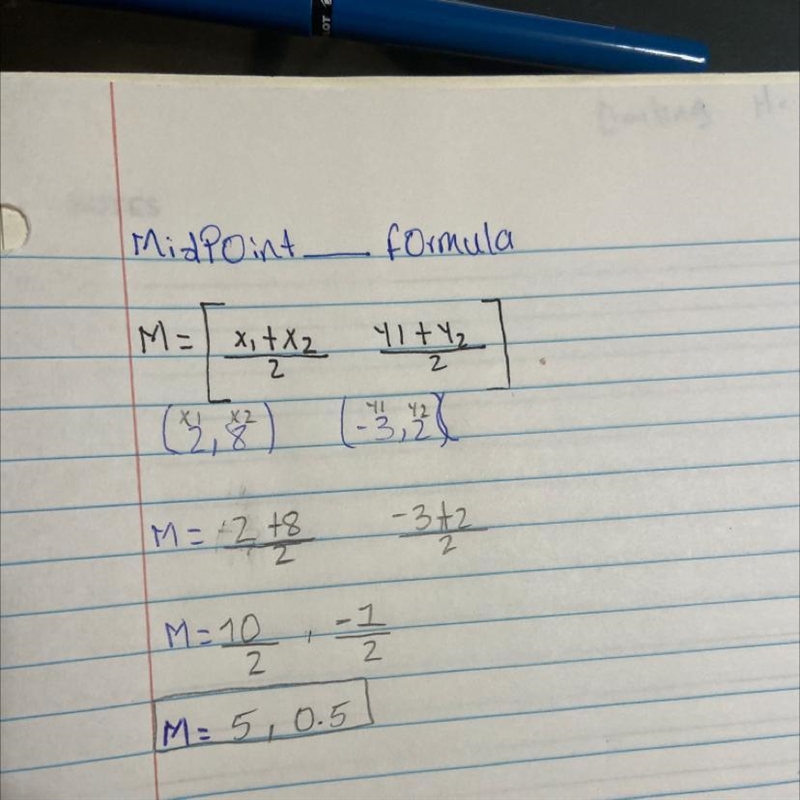 MidPoint __ formula
M = [ x₁+x₂/2 y1+y₂/2 ]
x1 x2 y1 y2
(2, 8) (-3, 2)
M = 2+8/2 -3+2/2
M = 10/2 , -1/2
M = 5, 0.5